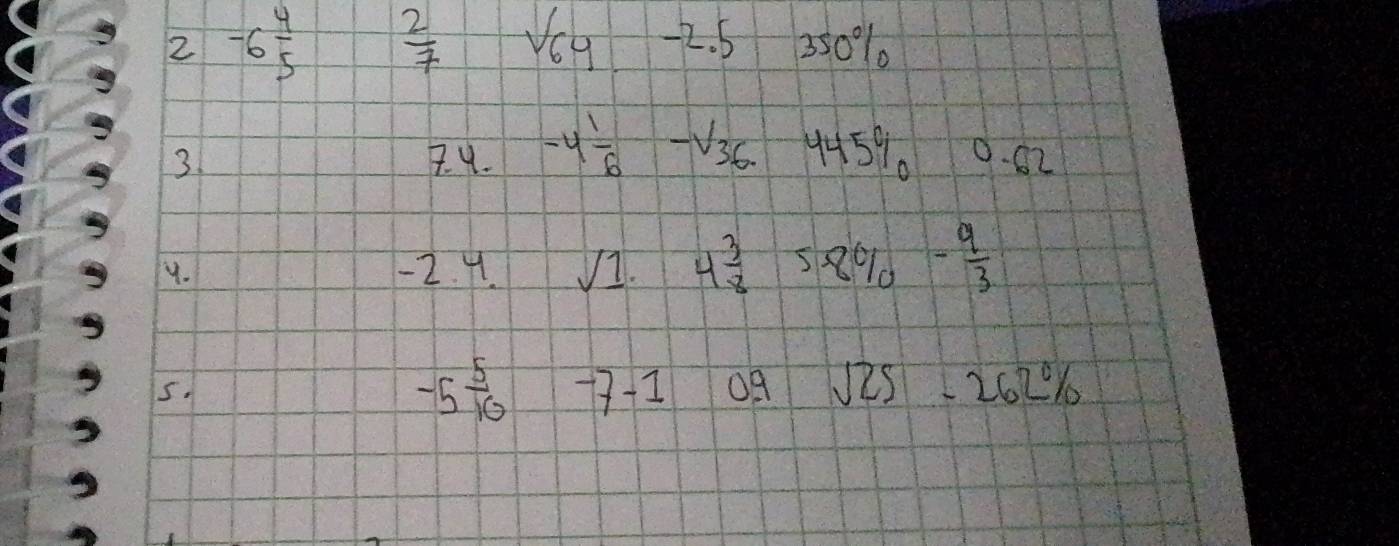 2 -6 4/5 2/7 √64 -2.5 350%
3. 7.4. -4 1/6 -√36. 445% 0.62
4. -2.4. √1. 4 3/8 58% -9/3
5. -5 5/10 -7-1 0.9 √25 -262%